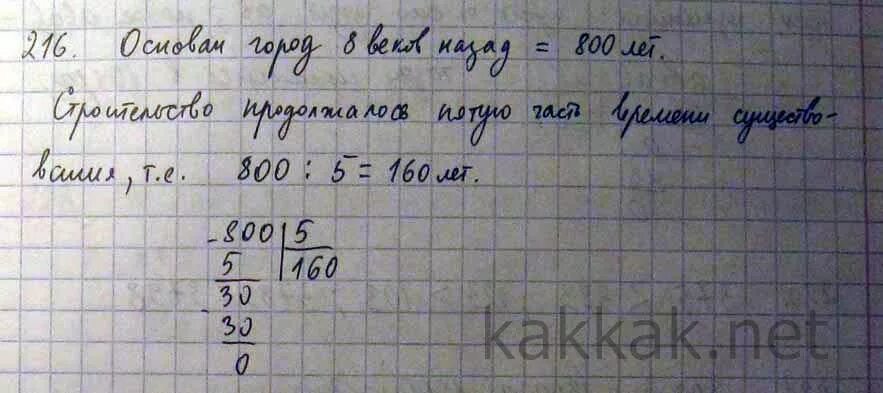 216. Основан город 8 веков назад = 800 лет.
Строительство продолжалось пятую часть времени существо-
вания, т.е. 800 : 5 = 160 лет.
-800 | 5
5 | 160
-30
30
0
kakkak.net